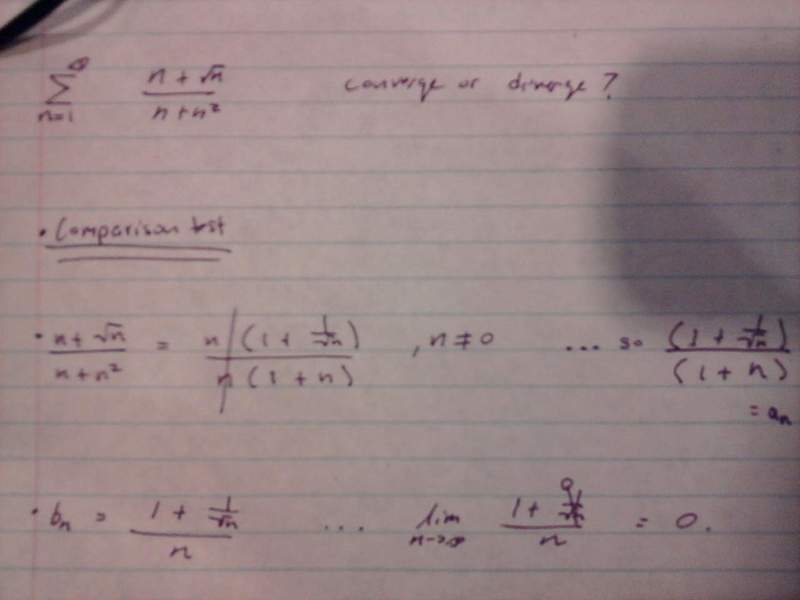 ∞
∑ (n + √n)/(n + n²) converge or diverge?
n=1
• Comparison test
• (n + √n)/(n + n²) = n(1 + 1/√n)/n(1 + n) , n ≠ 0 ... so (1 + 1/√n)/(1 + n)
= aₙ
• bₙ = (1 + 1/√n)/n ... lim n→∞ (1 + 1/√n)/n = 0.
0